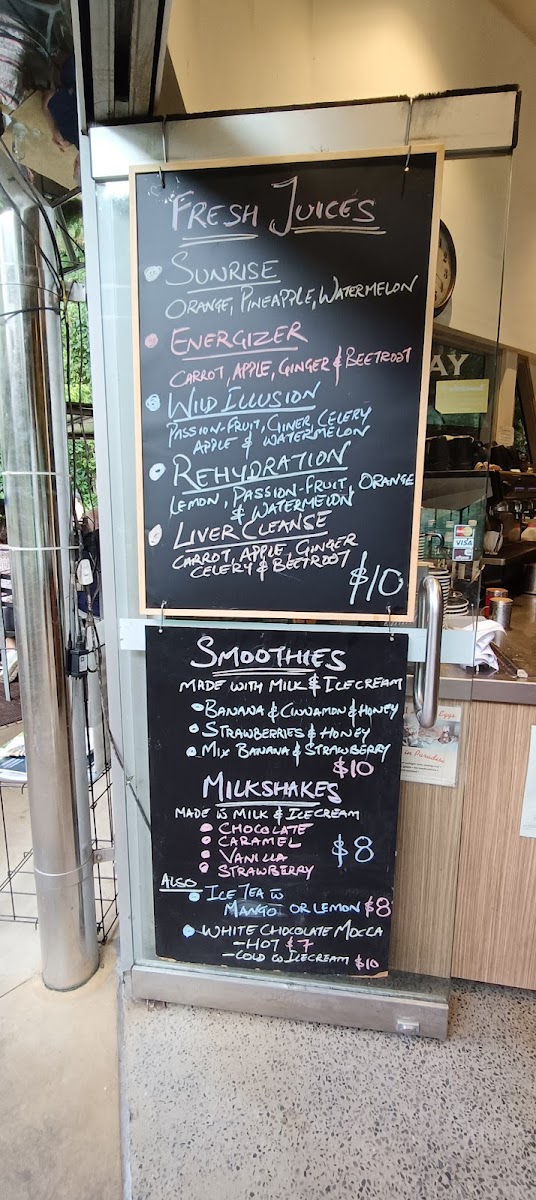 FRESH JUICES
SUNRISE
ORANGE, PINEAPPLE, WATERMELON
ENERGIZER
CARROT, APPLE, GINGER & BEETROOT
WILD ILLUSION
PASSION-FRUIT, GINER, CELERY
APPLE & WATERMELON
REHYDRATION
LEMON, PASSION-FRUIT, ORANGE
& WATERMELON
LIVER CLEANSE
CARROT, APPLE, GINGER
CELERY & BEETROOT
$10
AY
VISA
SMOOTHIES
MADE WITH MILK & ICECREAM
BANANA & CINNAMON & HONEY
STRAWBERRIES & HONEY
MIX BANANA & STRAWBERRY
$10
MILKSHAKES
MADE W MILK & ICECREAM
CHOCOLATE
CARAMEL
$8
VANILLA
STRAWBERRY
ALSO
ICE TEA W
MANGO OR LEMON $8
WHITE CHOCOLATE MOCCA
- HOT $7
- COLD W ICECREAM $10
Eggs
in Paradise